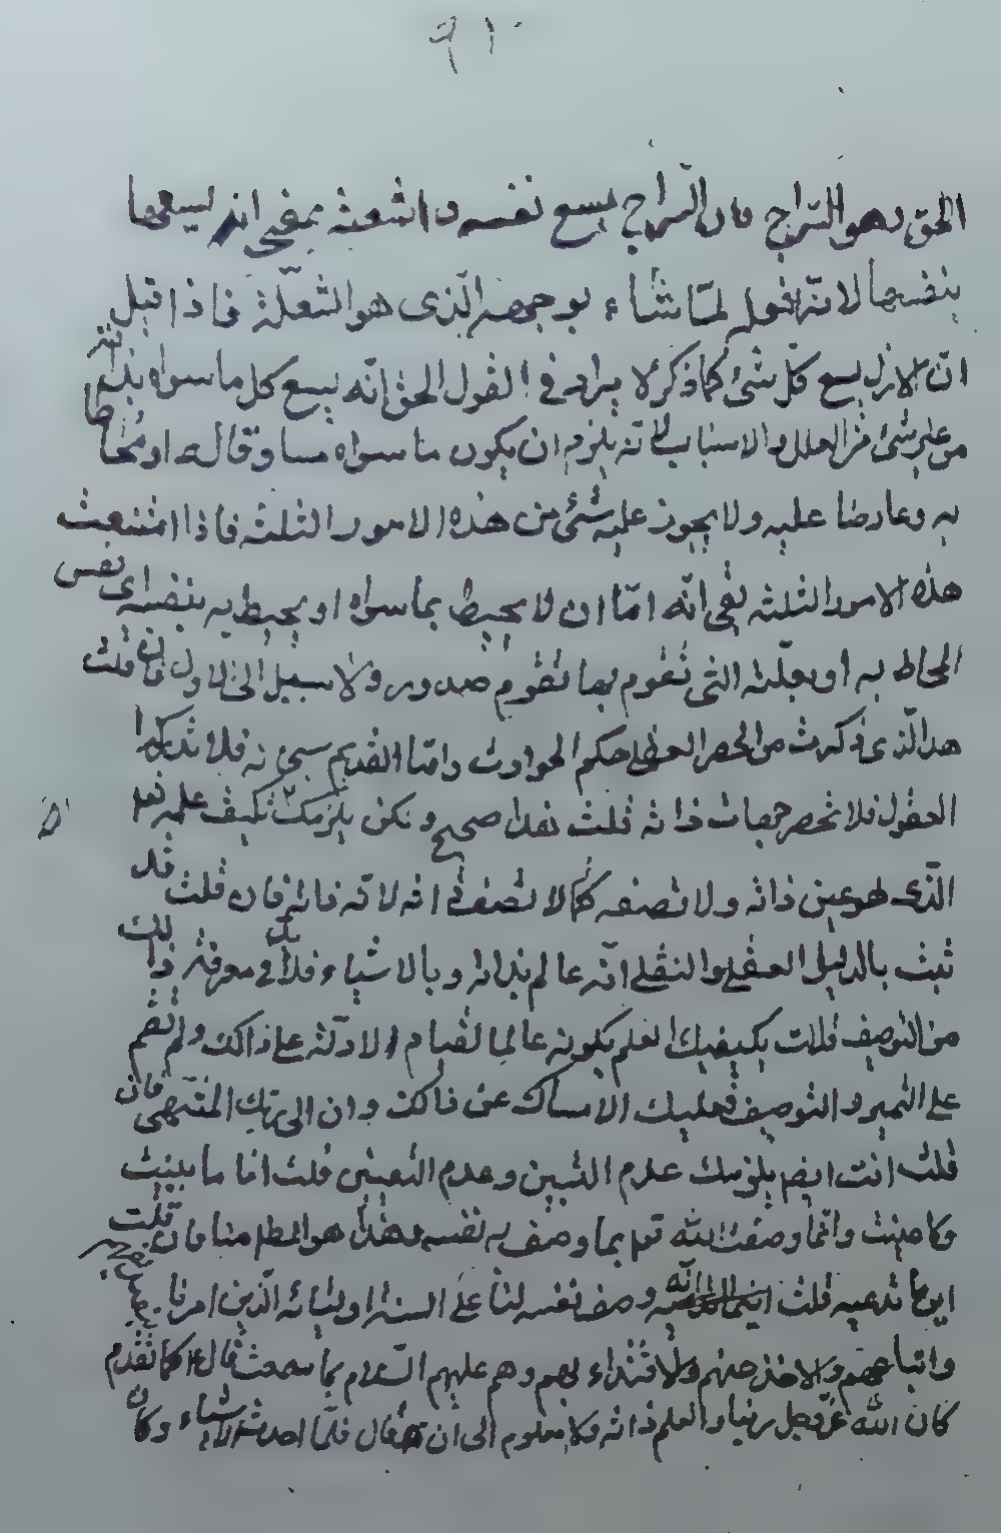 ٩١٠
الحق وهو السراج فان السراج يسع نفسه واشعته بمعنى انه يسعها
بنفسها لانه لما شاء بوجهه الذى هو الشعلة فاذا قيل
ان الازل يسع كل شئ كما ذكر لا يراد فى القول الحق انه يسع كل ما سواه بذاته
من غير شئ من العلل والاسباب لانه يلزم ان يكون ما سواه مساوقا له او محاطا
به وعارضا عليه ولا يجوز عليه شئ من هذه الامور الثلثة فاذا امتنعت
هذه الامور الثلثه بقى انه اما ان لا يحيط بما سواه او يحيط به بنفسه اى نفس
المحاط به او بعلته التى تقوم بها تقوم صدور ولا سبيل الى الاول فان قلت
هذا الذى ذكرت من الحصر العقلى حكم الحوادث واما القديم فلا تدركه
العقول فلا تحصر جهات ذاته قلت هذا صحيح ولكن يلزمك تكيف علمه
الذى هو عين ذاته ولا تصفه كما لا تصف ذاته لانه ذاته فان قلت قد
ثبت بالدليل العقلى والنقلى انه عالم بذاته وبالاشياء فلا بد فى معرفة ذلك
من التوصيف قلت يكيفيك العلم بكونه عالما لقيام الادلة على ذلك ولم تقم
على التميز والتوصيف فعليك الامساك عن ذلك وان الى ربك المنتهى فان
قلت انت ايضا يلزمك عدم التبين وعدم التعيين قلت انا ما بينت
وما عينت وانما وصفت الله تعالى بما وصف به نفسه وهذا هو المطلوب منا فان قلت
اين ما تدعيه قلت انه وصف نفسه لنا على السنة اوليائه الذين امرنا
واتباعهم والاخذ عنهم والاقتداء بهم وهم عليهم السلام بما سمعت قال كما تقدم
كان الله عز وجل ربنا والعلم ذاته ولا معلوم الى ان قال فلما احدث الاشياء وكان